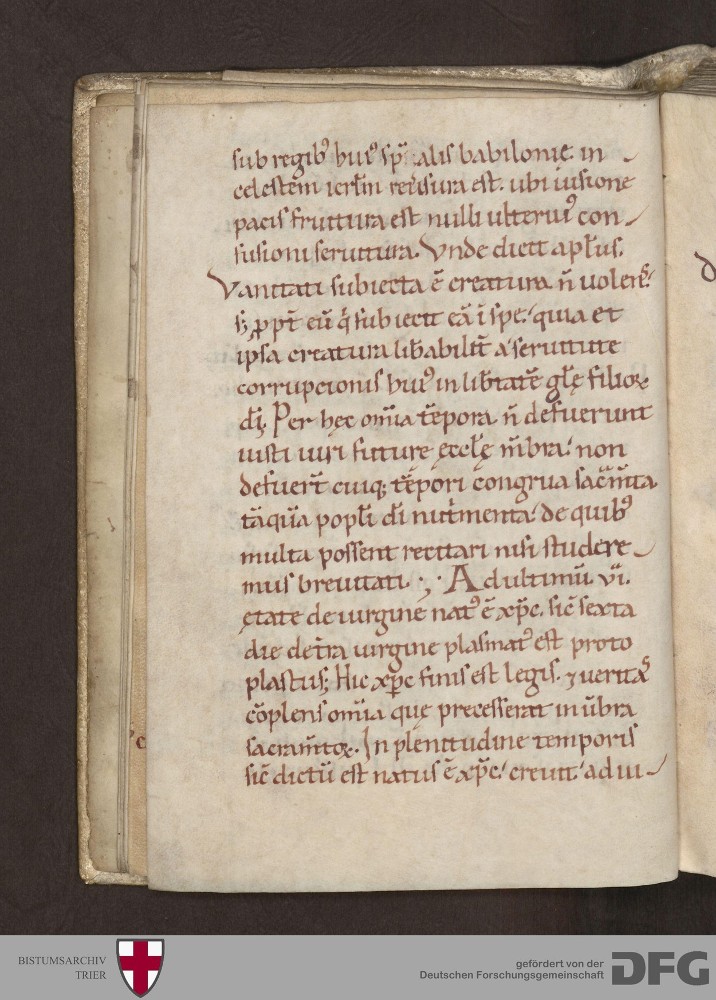 sub regib⁹ hui⁹ sp̄ alis babilonię. in
celestem ierłm reuisura est. ubi iusione
pacis fruitura est nulli ulteri⁹ con
fusioni seruitura. Vnde dicit apłus.
Vanitati subiecta ē creatura n̄ uolens.
s; ꝓpt̄ eū q̇ subiecit eā ī spe. quia et
ipsa creatura lib̄abilit̄ a seruitute
corrupcionis hui⁹ in lib̄tatē glę filioꝝ
dī. Per hęc om̄ia tēpora n̄ defuerunt
iusti uiri futurę ęcclę m̄bra. non
defuer̄t cuiq; tēpori congrua sac̄m̄ta
tāquā popłi dī nut̄menta. de quib⁹
multa possent recitari nisi studere
mus breuitati. Ad ultimū. vi.
ętate de uirgine nat⁹ ē xp̄c. sic̄ sexta
die de t̄ra uirgine plasmat⁹ est proto
plastus; Hic xp̄c finis est legis. ⁊ ueritas
cōplens om̄ia quę precesserat in ūbra
sacram̄toꝝ. In plenitudine temporis
sic̄ dictū est natus ē xp̄c. creuit. ad ui
BISTUMSARCHIV
TRIER
gefördert von der
Deutschen Forschungsgemeinschaft
DFG